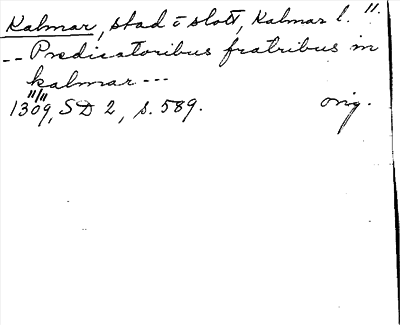 Kalmar, stad o slott, Kalmar l. 11.
-- Predicatoribus fratribus in
kalmar ---
11/11
1309, SD 2, s. 589. orig.